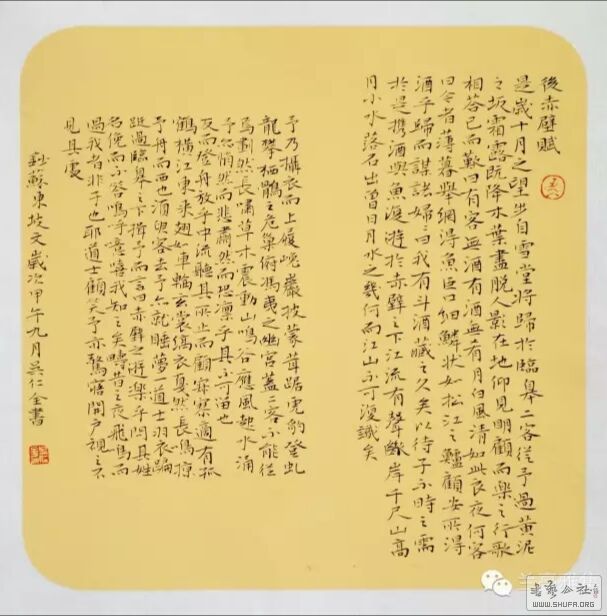 後赤壁賦
是歲十月之望步自雪堂將歸於臨皋二客從予過黃泥
之坂霜露既降木葉盡脫人影在地仰見明顧而樂之行歌
相答已而歎曰有客無酒有酒無肴月白風清如此良夜何客
曰今者薄暮舉網得魚巨口細鱗狀如松江之鱸顧安所得
酒乎歸而謀諸婦婦曰我有斗酒藏之久矣以待子不時之需
於是携酒與魚復遊於赤壁之下江流有聲斷岸千尺山高
月小水落石出曾日月水之幾何而江山不可復識矣
予乃攝衣而上履巉巖披蒙茸踞虎豹登虬
龍攀栖鶻之危巢俯馮夷之幽宮蓋二客不能從
焉劃然長嘯草木震動山鳴谷應風起水涌
予亦悄然而悲肅然而恐凜乎其不可留也
反而登舟放乎中流聽其所止而顧寂寥適有孤
鶴橫江東來翅如車輪玄裳縞衣戛然長鳴掠
予舟而西也須臾客去予亦就睡夢一道士羽衣蹁
躚過臨皋之下揖予而言曰赤壁之遊樂乎問其姓
名俛而不答嗚乎噫嘻我知之矣疇昔之夜飛鳴而
過我者非子也耶道士顧笑予亦驚寤開戶視之不
見其處
錄蘇東坡文歲次甲午九月吳仁全書
WWW.SHUFA.ORG